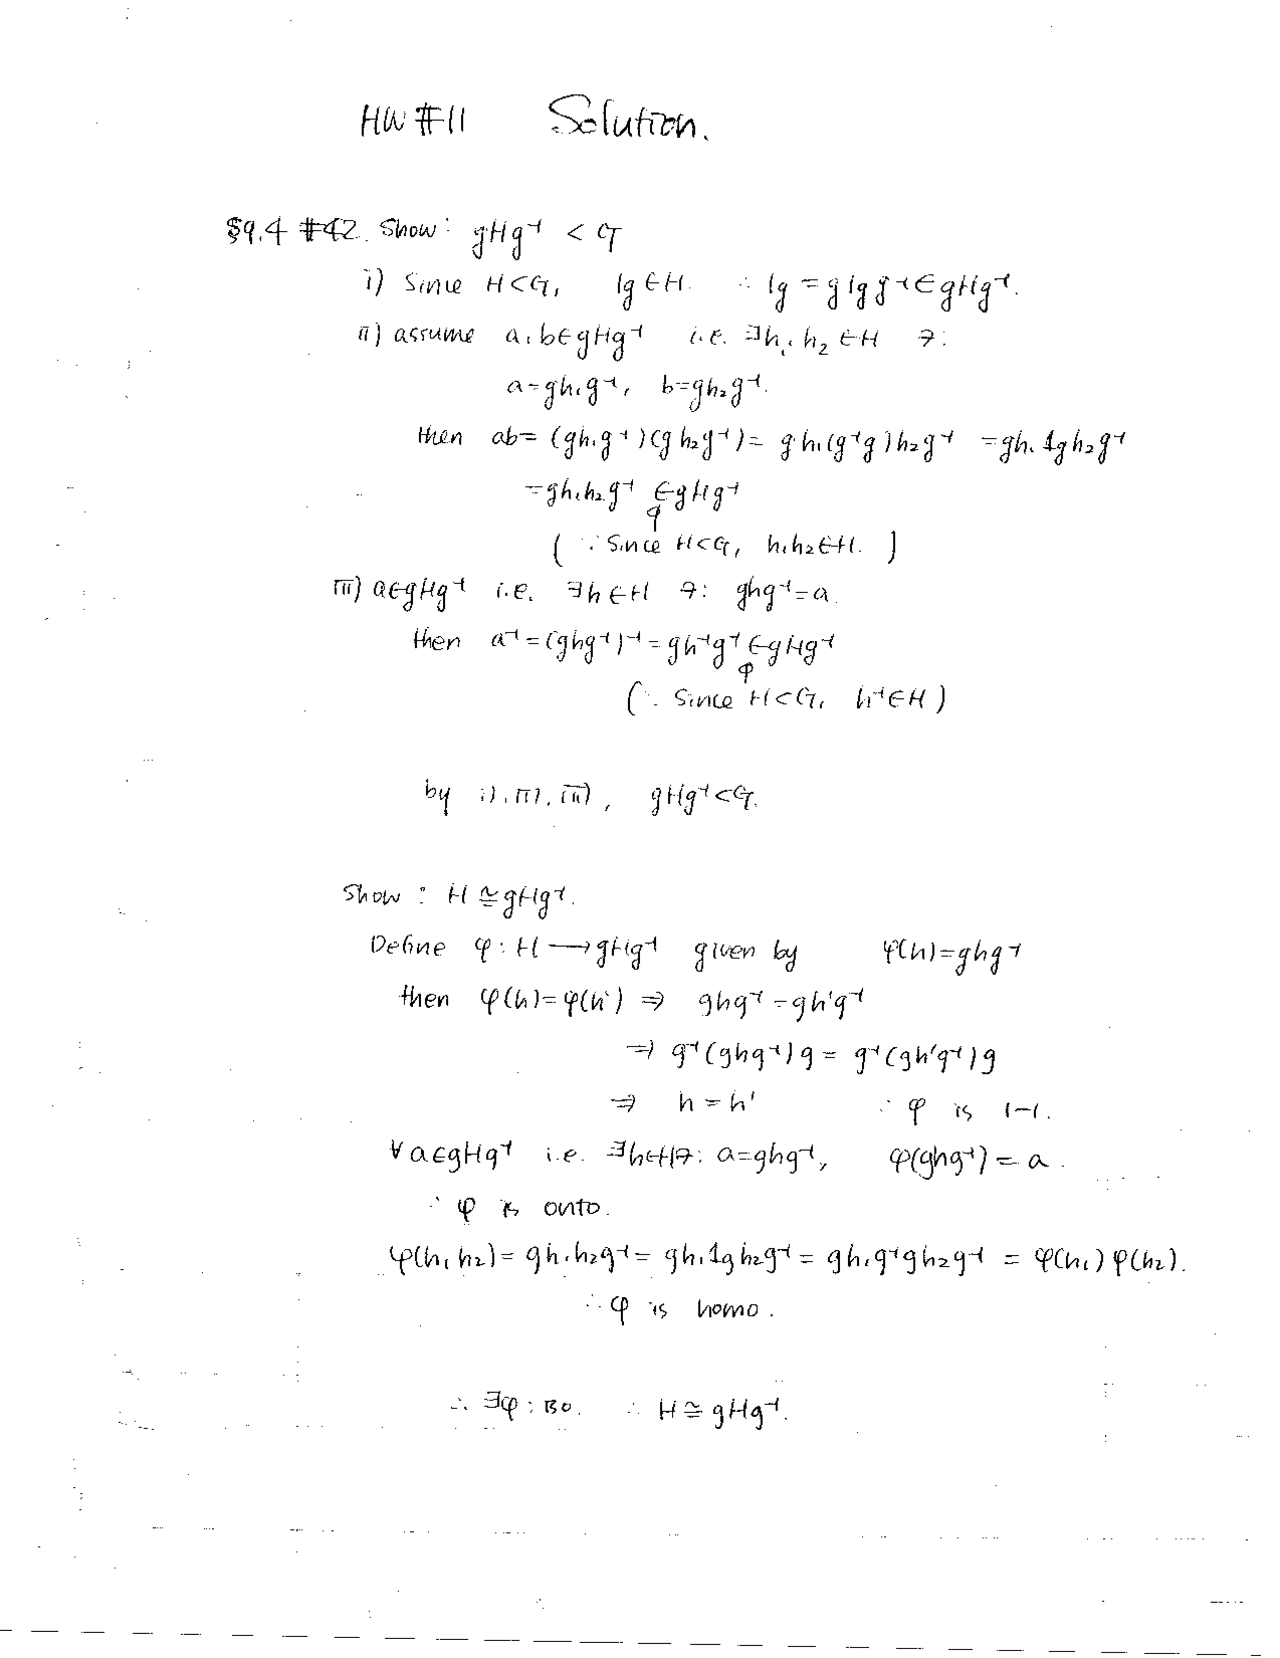 HW #11 Solution.
§9.4 #42. Show: gHg⁻¹ < G
i) Since H<G, 1g∈H. ∴ 1g = g1gg⁻¹∈gHg⁻¹.
ii) assume a,b∈gHg⁻¹ i.e. ∃h₁,h₂∈H ∋:
a=gh₁g⁻¹, b=gh₂g⁻¹.
then ab= (gh₁g⁻¹)(gh₂g⁻¹)= gh₁(g⁻¹g)h₂g⁻¹ =gh₁1gh₂g⁻¹
=gh₁h₂g⁻¹ ∈gHg⁻¹
(∵ Since H<G, h₁h₂∈H.)
iii) a∈gHg⁻¹ i.e. ∃h∈H ∋: ghg⁻¹=a.
then a⁻¹=(ghg⁻¹)⁻¹=gh⁻¹g⁻¹∈gHg⁻¹
(∵ Since H<G, h⁻¹∈H)
by i), ii), iii), gHg⁻¹<G.
Show: H≅gHg⁻¹.
Define φ: H⟶gHg⁻¹ given by φ(h)=ghg⁻¹
then φ(h)=φ(h') ⇒ ghg⁻¹=gh'g⁻¹
⇒ g⁻¹(ghg⁻¹)g = g⁻¹(gh'g⁻¹)g
⇒ h=h' ∴ φ is 1-1.
∀a∈gHg⁻¹ i.e. ∃h∈H∋: a=ghg⁻¹, φ(ghg⁻¹)=a.
∴ φ is onto.
φ(h₁h₂)= gh₁h₂g⁻¹= gh₁1gh₂g⁻¹= gh₁g⁻¹gh₂g⁻¹ = φ(h₁)φ(h₂).
∴ φ is homo.
∴ ∃φ: iso. ∴ H≅gHg⁻¹.